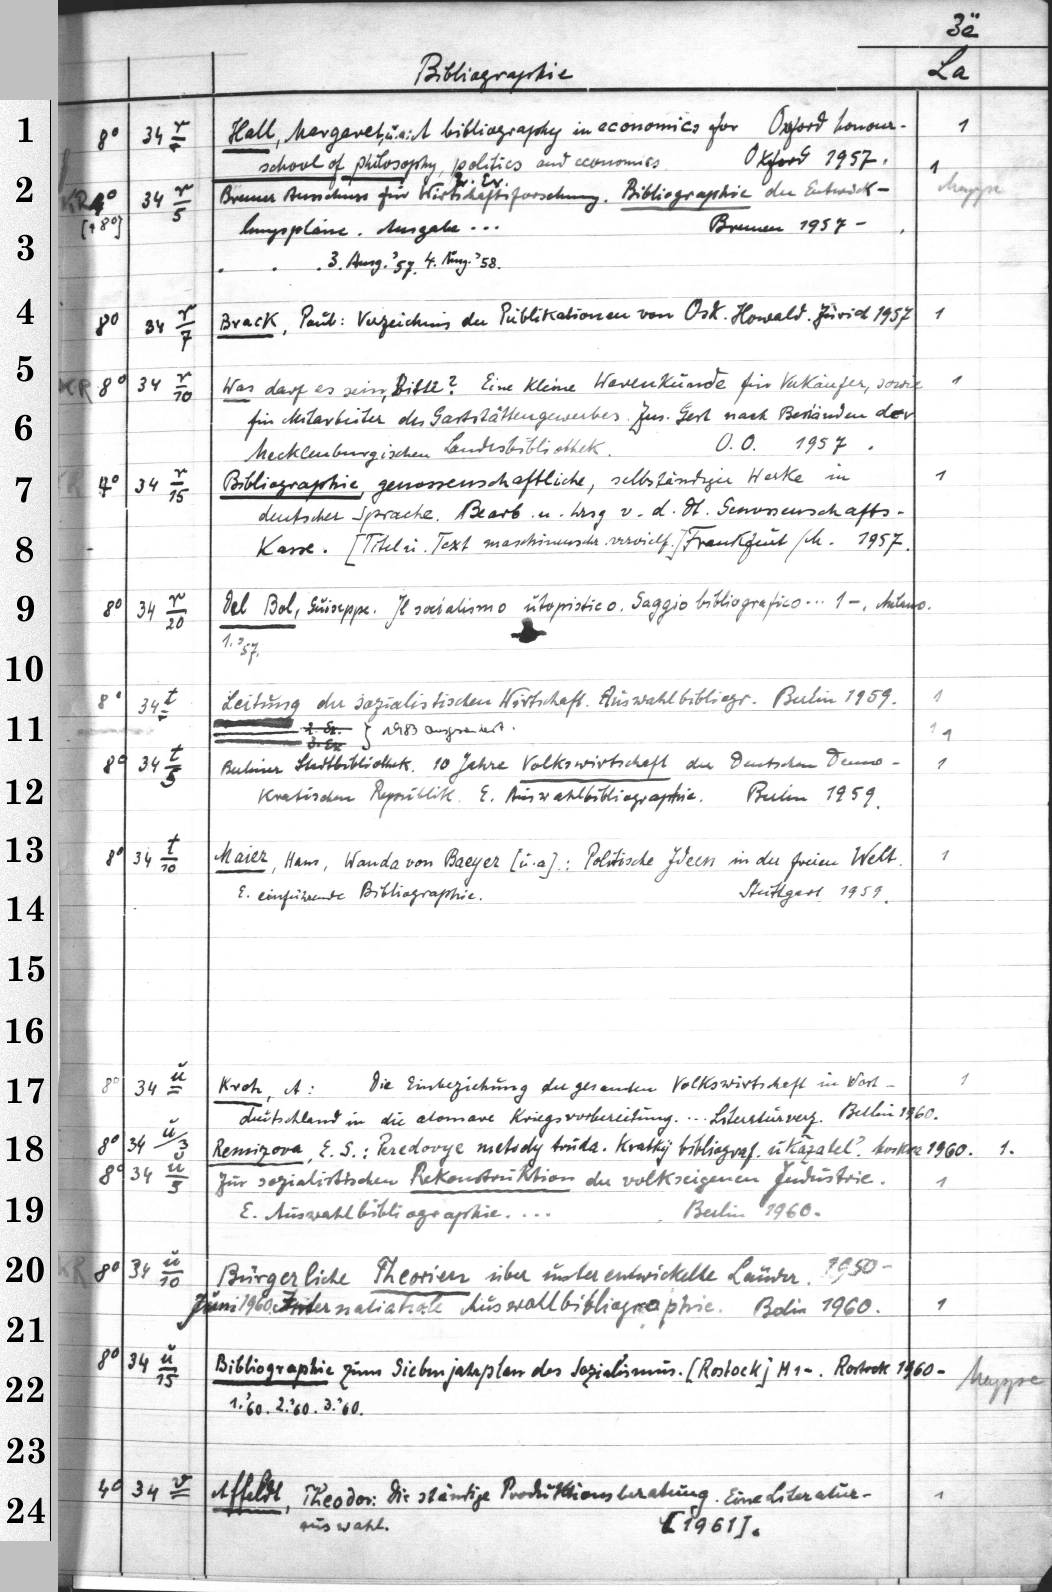 3ä
Bibliographie La
1 8° 34 r Hall, Margaret, u.a.: A bibliography in economics for Oxford honour- 1
school of philosophy, politics and economics Oxford 1957. 1
2 KR 4° 34 r/5 Bremer Ausschuss für Wirtschaftsforschung. Bibliographie der Entwick- Mappe
[+8°] lungspläne. Ausgabe ... Bremen 1957 -
3 3. Ausg. '57. 4. Ausg. '58.
4 8° 34 r/7 Brack, Paul: Verzeichnis der Publikationen von Osk. Howald. Zürich 1957 1
5 KR 8° 34 r/10 Was darf es sein, bitte? Eine kleine Warenkunde für Verkäufer, sowie 1
6 für Mitarbeiter des Gaststättengewerbes. Zus. Gest. nach Beständen der
Mecklenburgischen Landesbibliothek. O.O. 1957.
7 KR 4° 34 r/15 Bibliographie, genossenschaftliche, selbständiger Werke in 1
deutscher Sprache. Bearb. u. hrsg v. d. Dt. Genossenschafts-
8 Kasse. [Titel u. Text maschinenschr. vervielf.] Frankfurt/M. 1957.
9 8° 34 r/20 Del Bo, Guiseppe. Il socialismo utopistico. Saggio bibliografico ... 1 -, Milano.
1. '57.
10
8° 34 t Leitung der sozialistischen Wirtschaft. Auswahlbibliogr. Berlin 1959. 1
11 2. Ex. 3. Ex. } 1983 ausgesondert. 1 1
8° 34 t/5 Berliner Stadtbibliothek. 10 Jahre Volkswirtschaft der Deutschen Demo- 1
12 kratischen Republik. E. Auswahlbibliographie. Berlin 1959.
13 8° 34 t/10 Maier, Hans, Wanda von Baeyer [u.a].: Politische Ideen in der freien Welt. 1
14 E. einführende Bibliographie. Stuttgart 1959.
15
16
17 8° 34 u Kroh, A: Die Einbeziehung der gesamten Volkswirtschaft in West- 1
deutschland in die atomare Kriegsvorbereitung. ... Literaturverz. Berlin 1960.
18 8° 34 u/3 Remizova, E. S.: Peredovye metody truda. Kratkij bibliograf. ukazatel'. Moskva 1960. 1.
8° 34 u/5 Zur sozialistischen Rekonstruktion der volkseigenen Industrie. 1
19 E. Auswahlbibliographie. ... Berlin 1960.
20 KR 8° 34 u/10 Bürgerliche Theorien über unterentwickelte Länder. 1950-
Juni 1960. Internationale Auswahlbibliographie. Berlin 1960. 1
21
8° 34 u/15 Bibliographie zum Siebenjahrplan des Sozialismus. [Rostock] H 1-. Rostock 1960 - Mappe
22 1.'60. 2.'60. 3.'60.
23
24 4° 34 v Affeldt, Theodor: Die ständige Produktionsberatung. Eine Literatur- 1
auswahl. [1961].